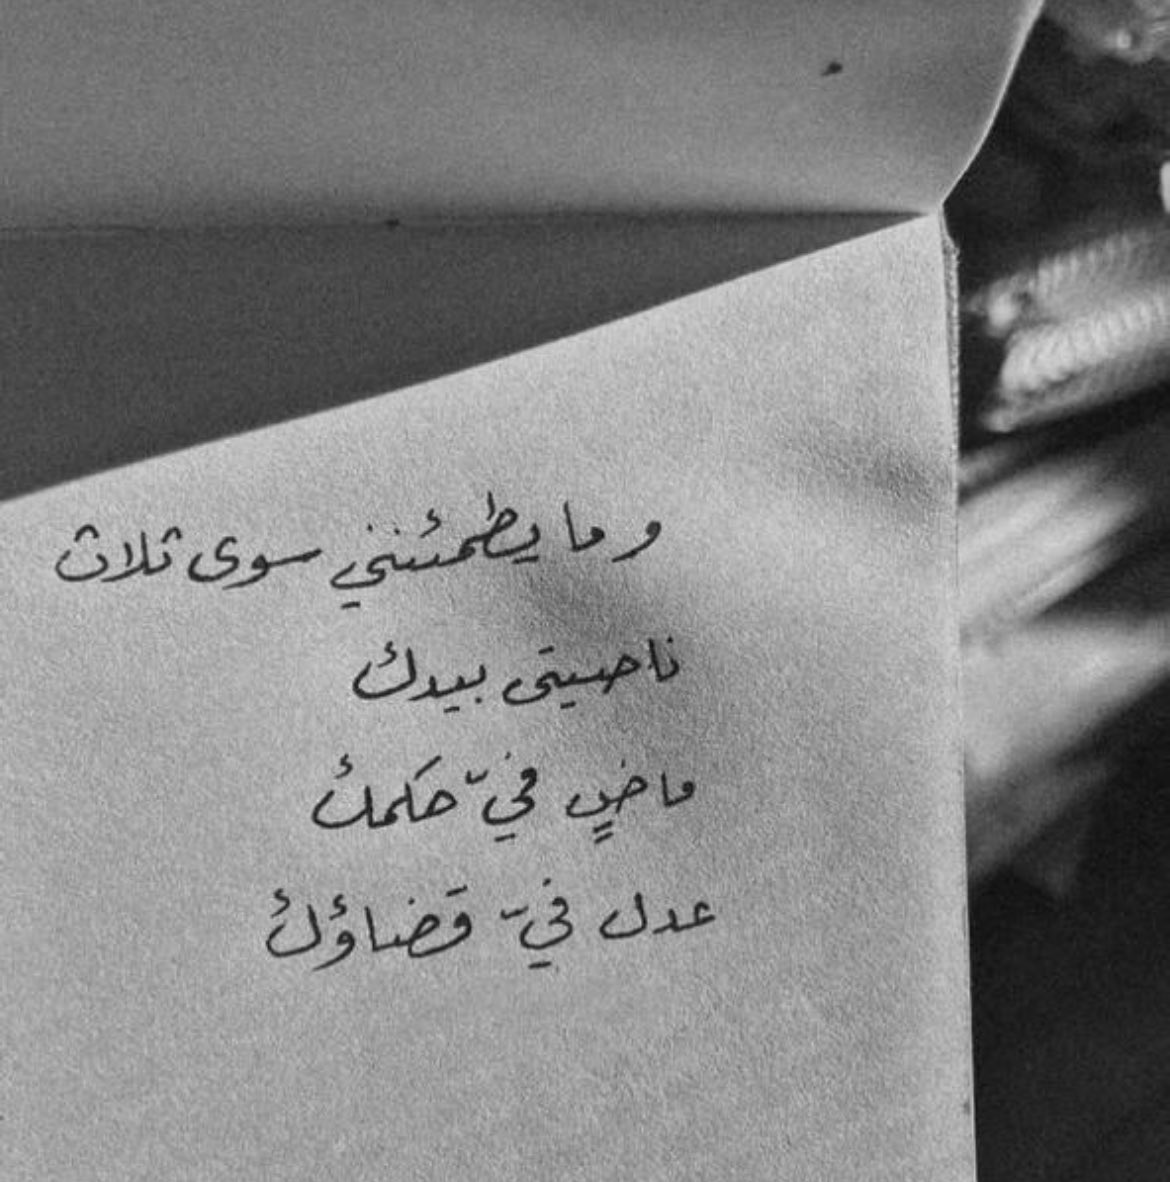 وما يطمئنني سوى ثلاث
ناصيتي بيدك
ماضٍ فيّ حكمك
عدل فيّ قضاؤك